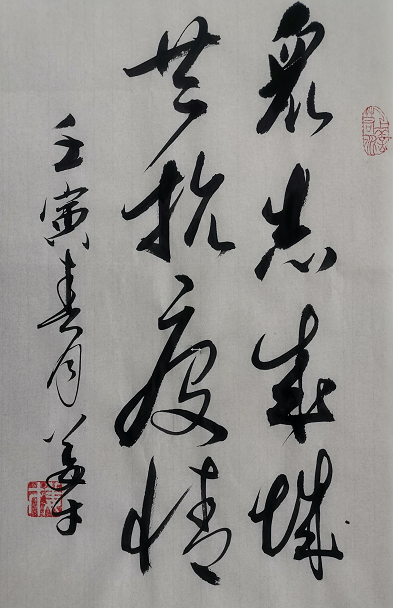 眾志成城
共抗疫情
壬寅春月